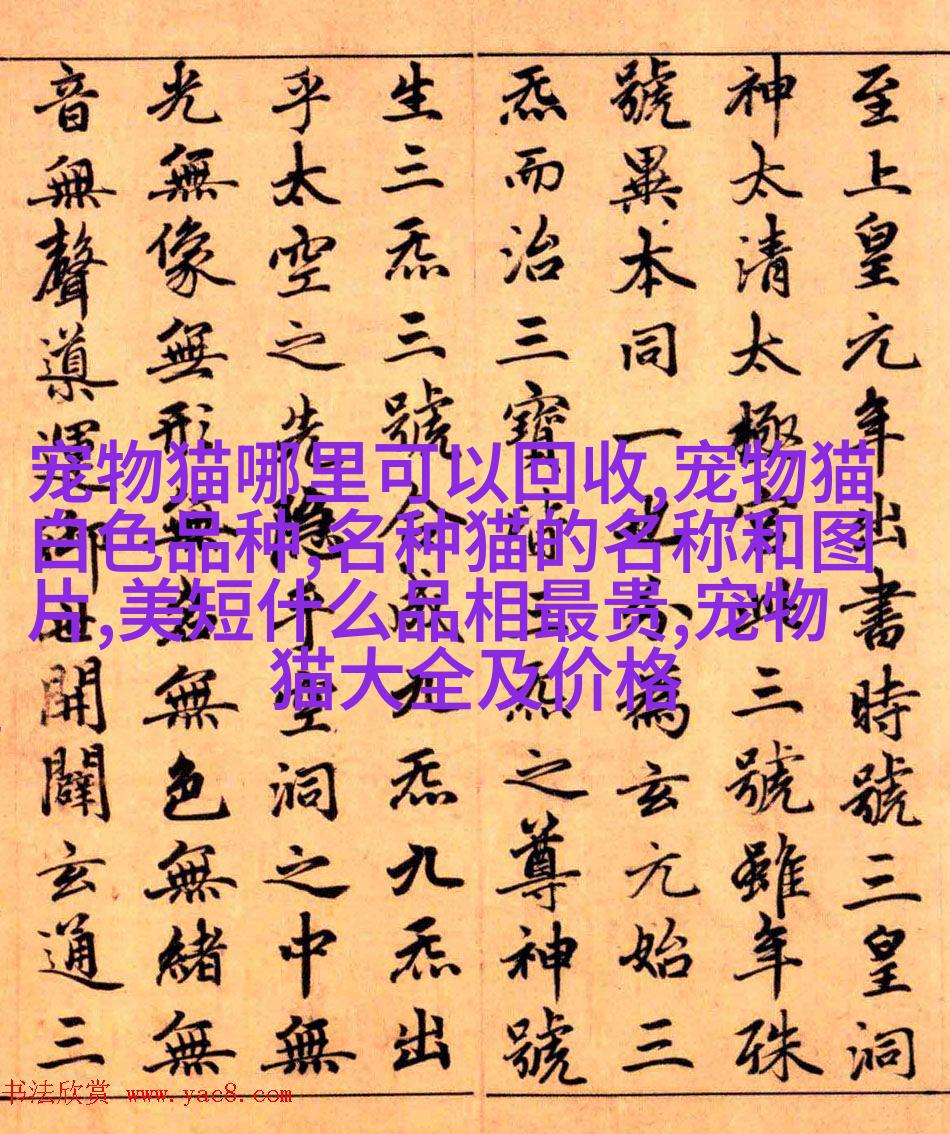 至上皇元年出書時號三皇洞
神太清太極宮此三號雖年殊
號異本同一也分為玄元始三
炁而治三寶皆三炁之尊神號
生三炁三號合成九炁九炁出
乎太空之先隱乎空洞之中無
光無像無形無名無色無緒無
音無聲導運御世開闢玄通三
宠物猫哪里可以回收,宠物猫
白色品种,名种猫的名称和图
片,美短什么品相最贵,宠物
猫大全及价格
书法欣赏 www.yac8.com